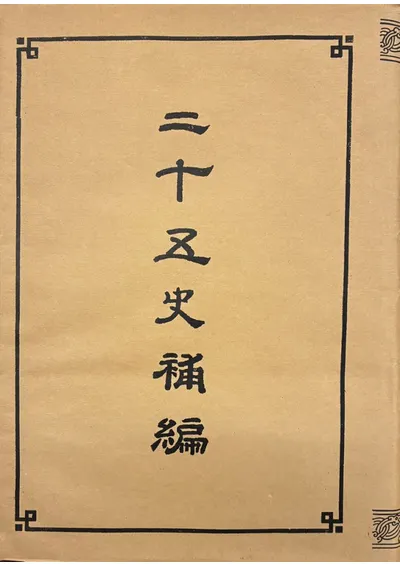 二十五史補編